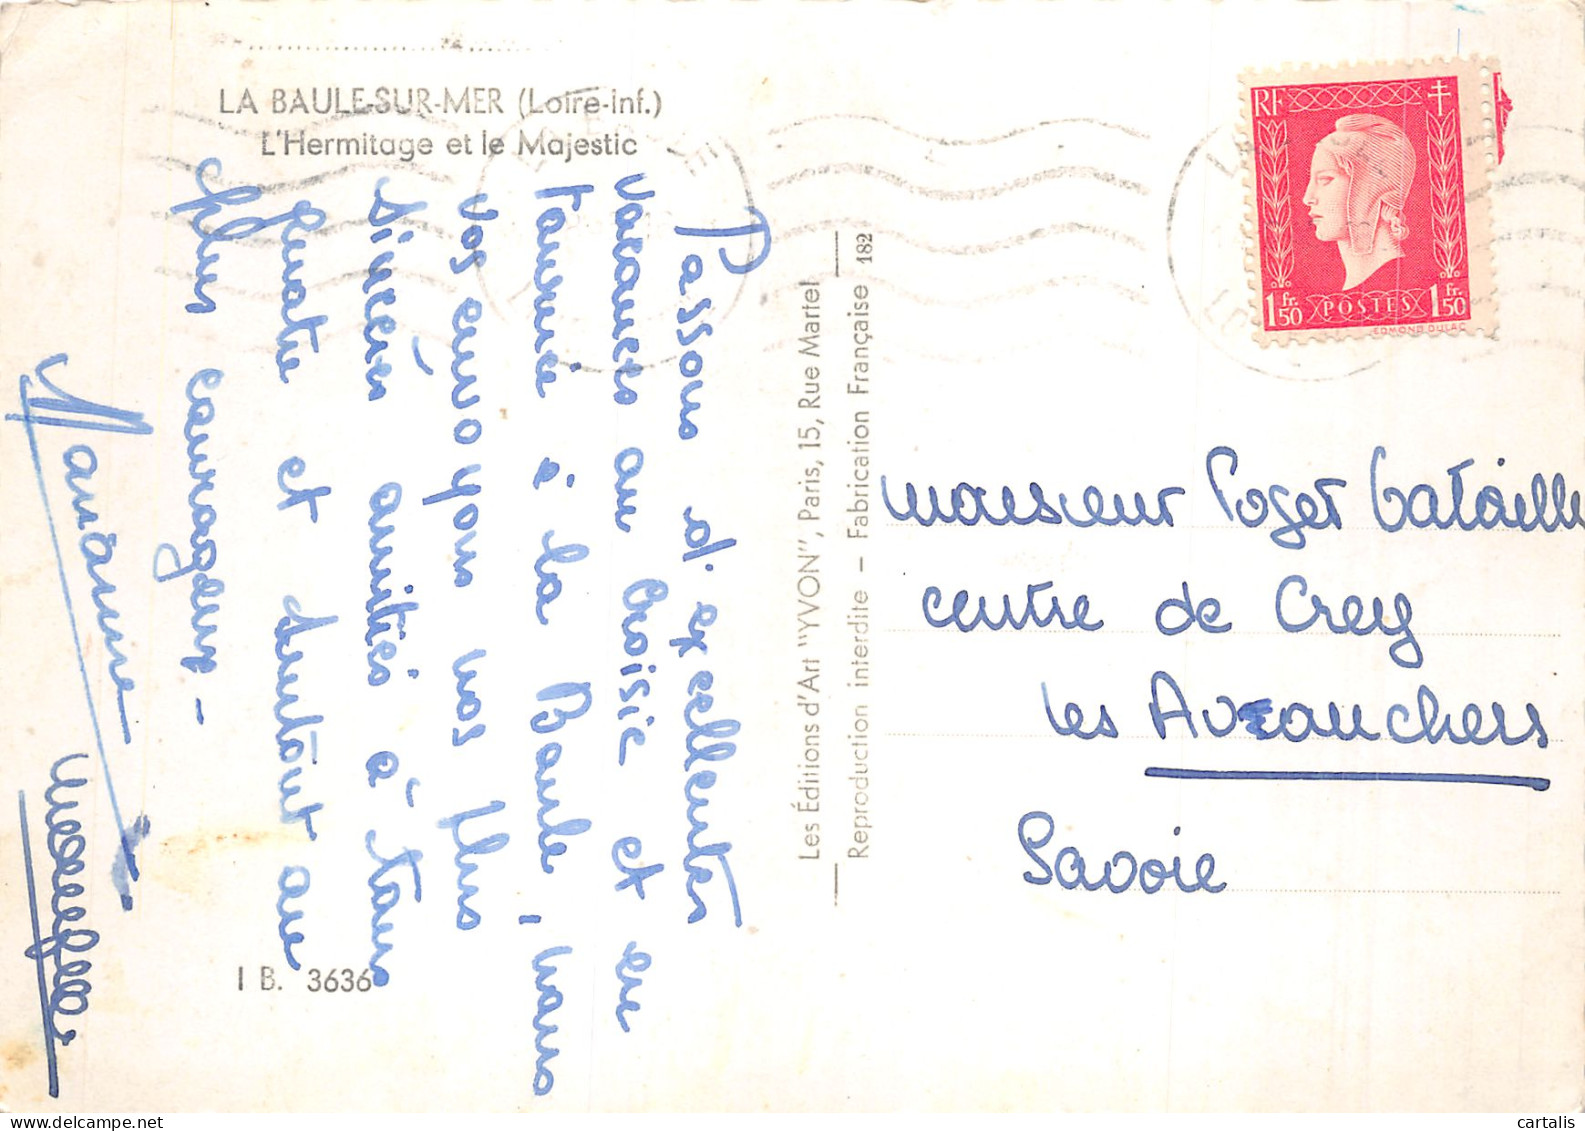 LA BAULE-SUR-MER (Loire-Inf.)
L'Hermitage et le Majestic
Passons d'excellentes
vacances au Croisic et en
tournée à la Baule, nous
vos envoyons nos plus
sincères amitiés à tous
quatre et surtout au
plus courageux -
Marianne
I B. 3636
Les Éditions d'Art "YVON", Paris, 15, Rue Martel
Reproduction interdite - Fabrication Française 182
RF
1 Fr. 50 POSTES 1 Fr. 50
EDMOND DULAC
monsieur Roger bataille
centre de Crey
les Avanchers
Savoie
cartalis